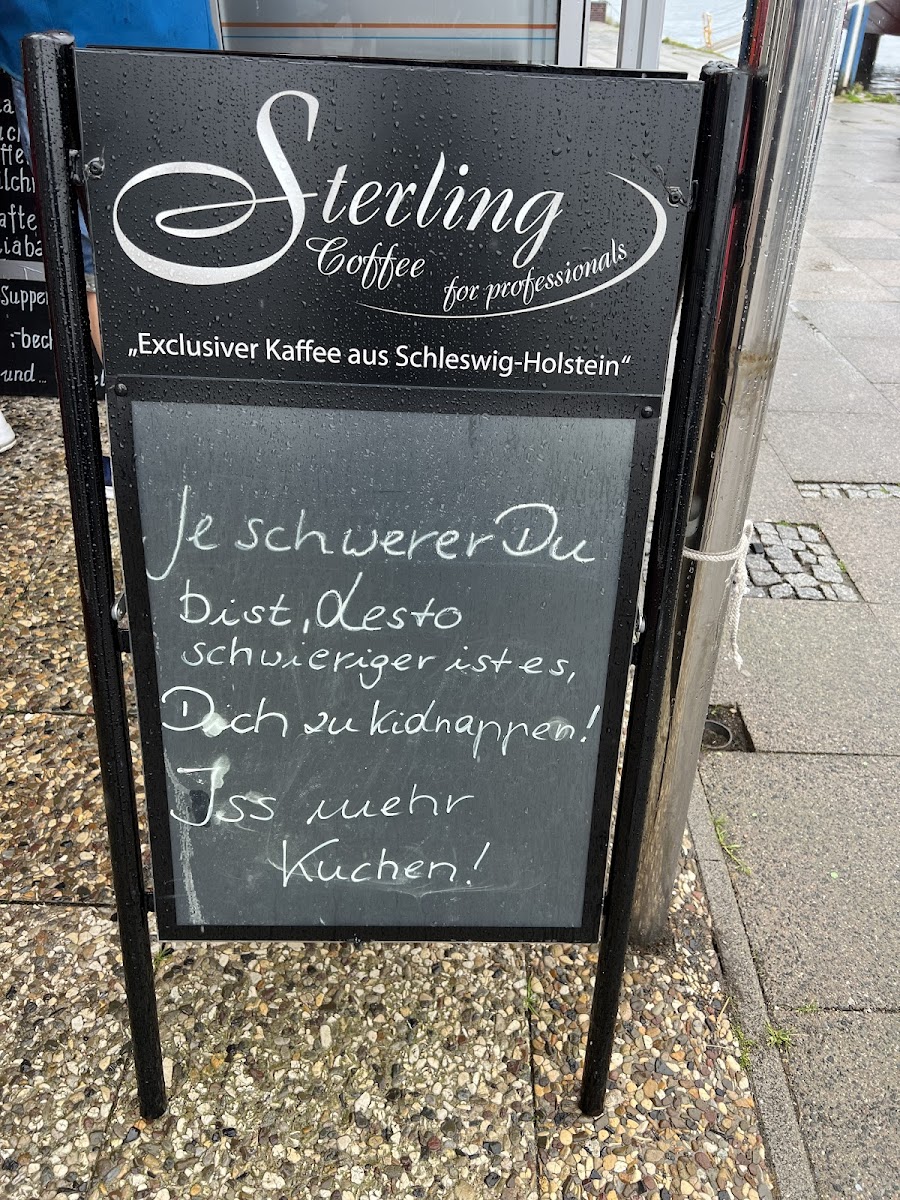 Sterling
Coffee
for professionals
„Exclusiver Kaffee aus Schleswig-Holstein“
Je schwerer Du
bist, desto
schwieriger ist es,
Dich zu kidnappen!
Iss mehr
Kuchen!
Suppe
und...